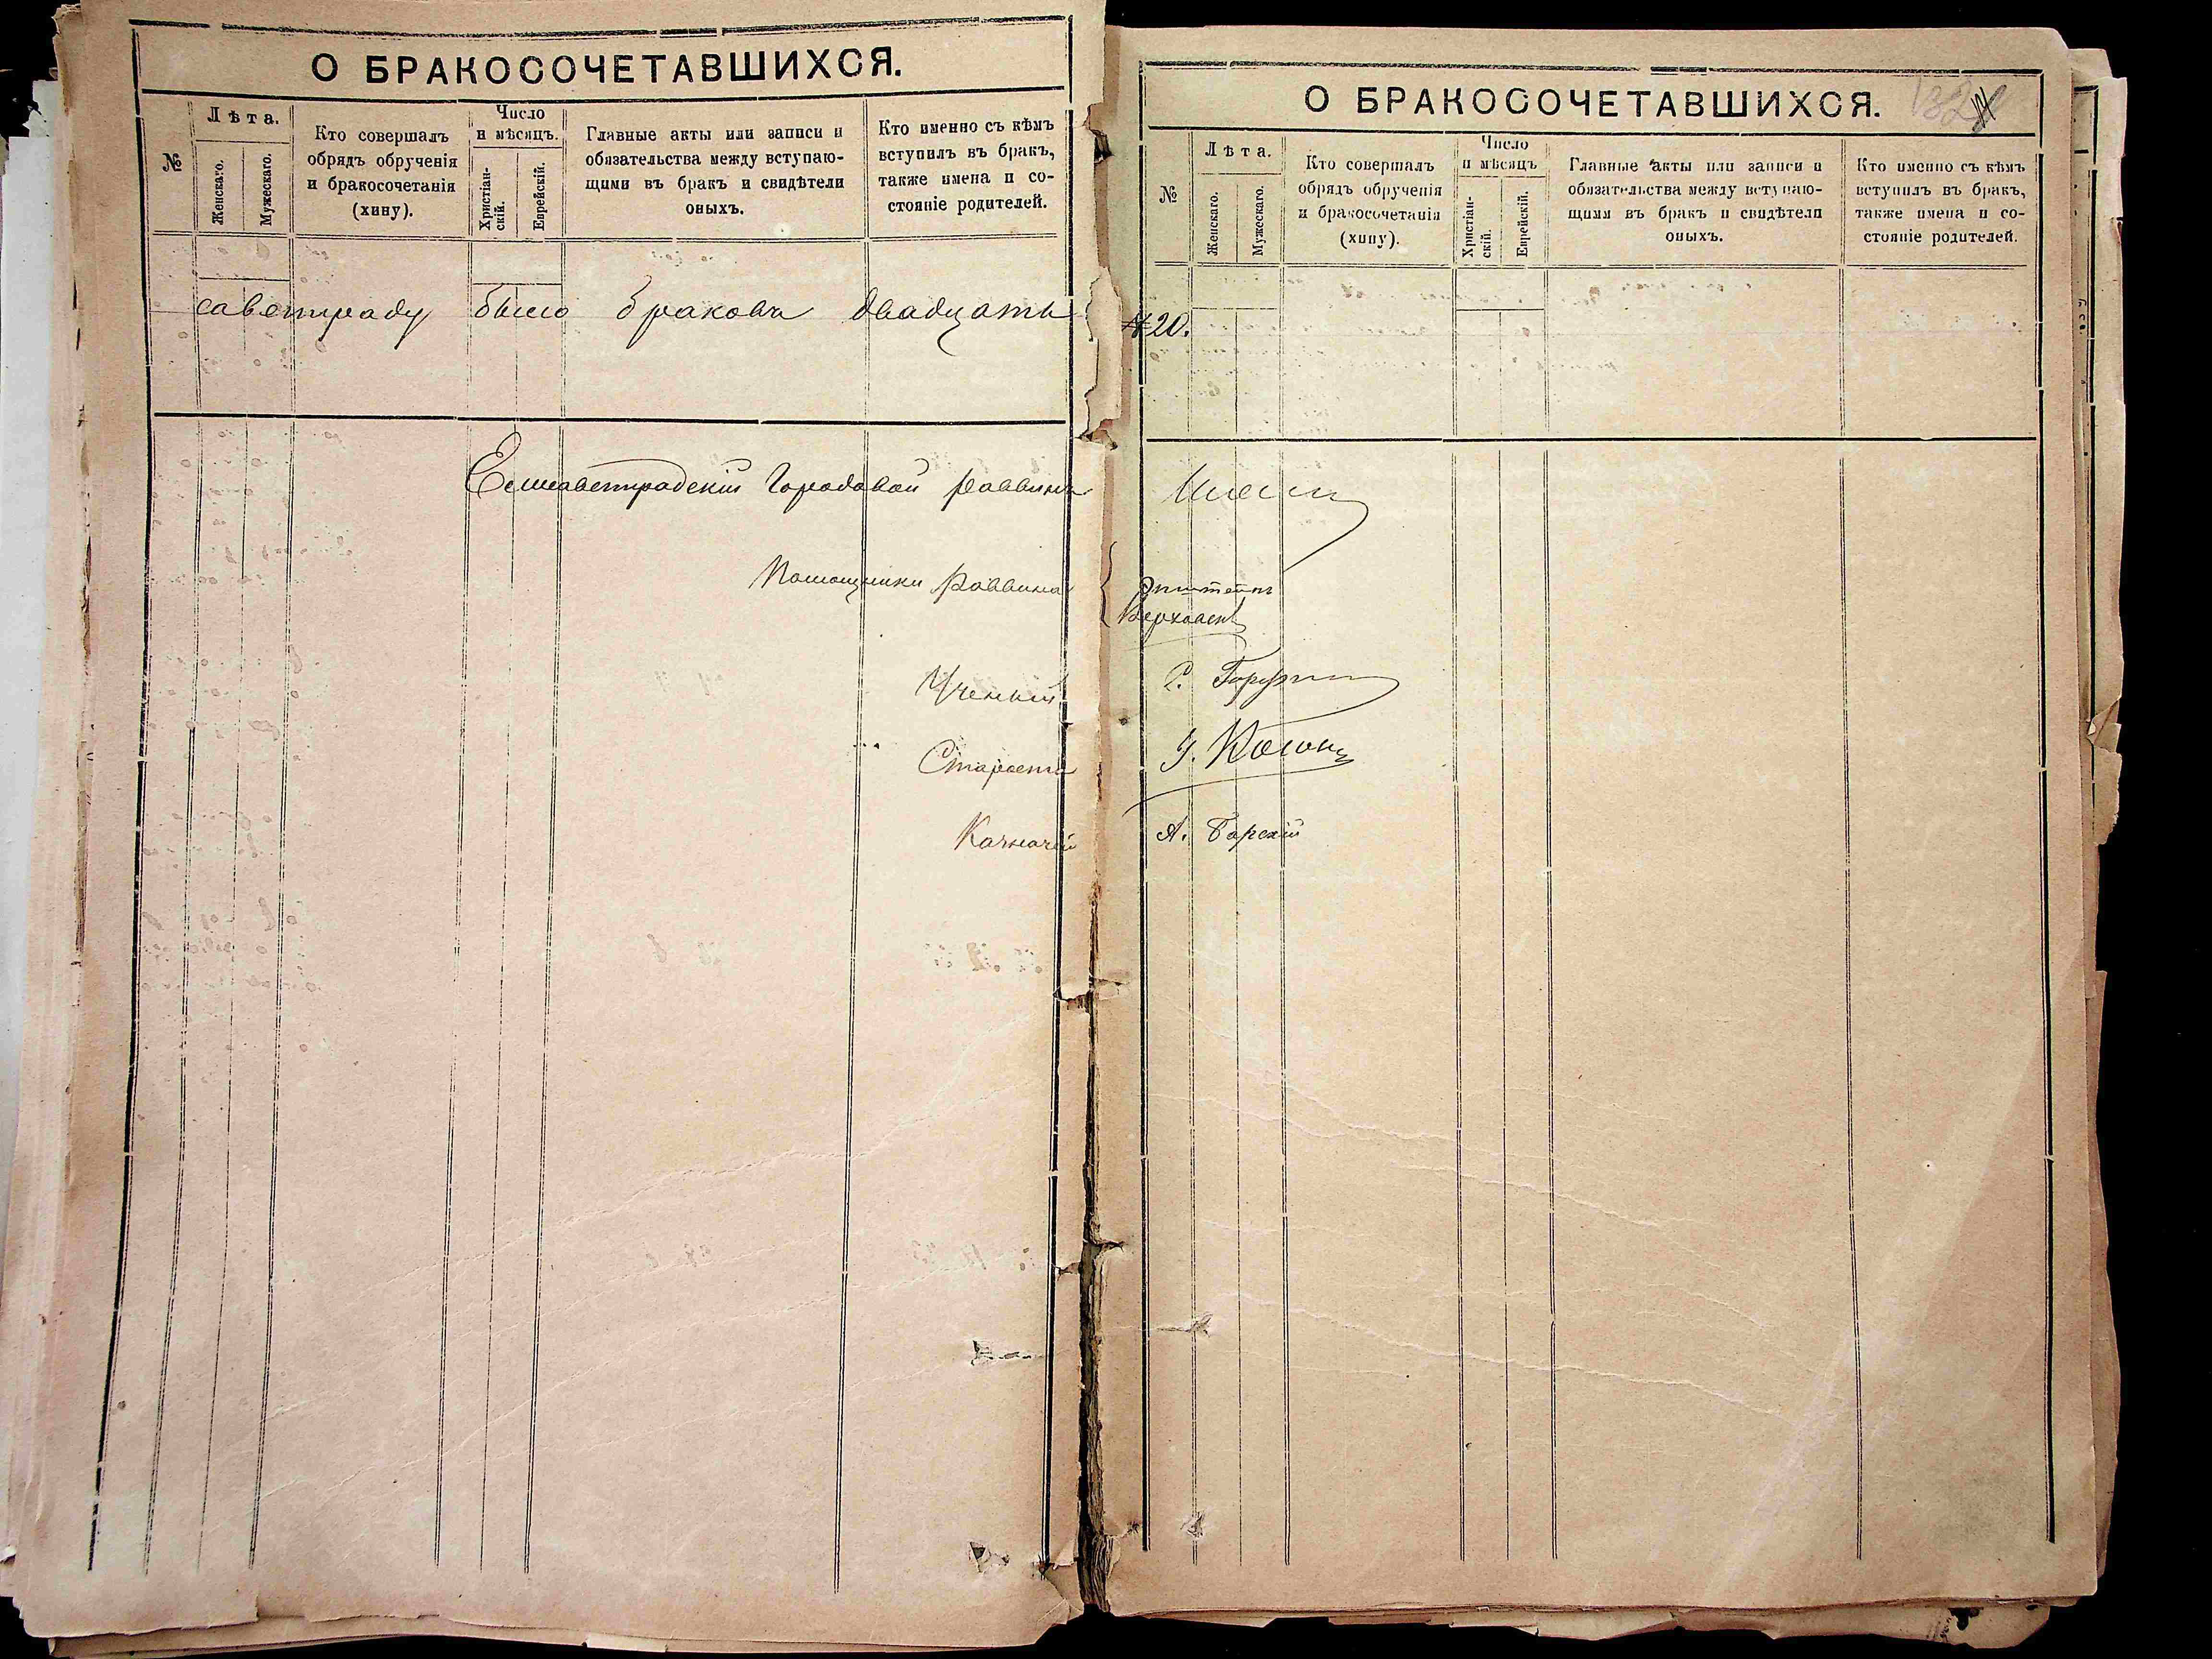 О БРАКОСОЧЕТАВШИХСЯ.
№
Лѣта.
Женскаго.
Мужескаго.
Кто совершалъ
обрядъ обрученія
и бракосочетанія
(хипу).
Число
и мѣсяцъ.
Христіан-
скій.
Еврейскій.
Главные акты или записи и
обязательства между вступаю-
щими въ бракъ и свидѣтели
оныхъ.
Кто именно съ кѣмъ
вступилъ въ бракъ,
также имена и со-
стояніе родителей.
саветграду было браковъ двадцать
Елисаветградскій Городовой раввинъ
Помощники Раввина
Ученый
Староста
Казначей
О БРАКОСОЧЕТАВШИХСЯ.
№
Лѣта.
Женскаго.
Мужескаго.
Кто совершалъ
обрядъ обрученія
и бракосочетанія
(хипу).
Число
и мѣсяцъ
Христіан-
скій.
Еврейскій.
Главные акты или записи и
обязательства между вступаю-
щими въ бракъ и свидѣтели
оныхъ.
Кто именно съ кѣмъ
вступилъ въ бракъ,
также имена и со-
стояніе родителей.
№ 20.
Эпштейнъ
І. Коганъ
А. Барскій